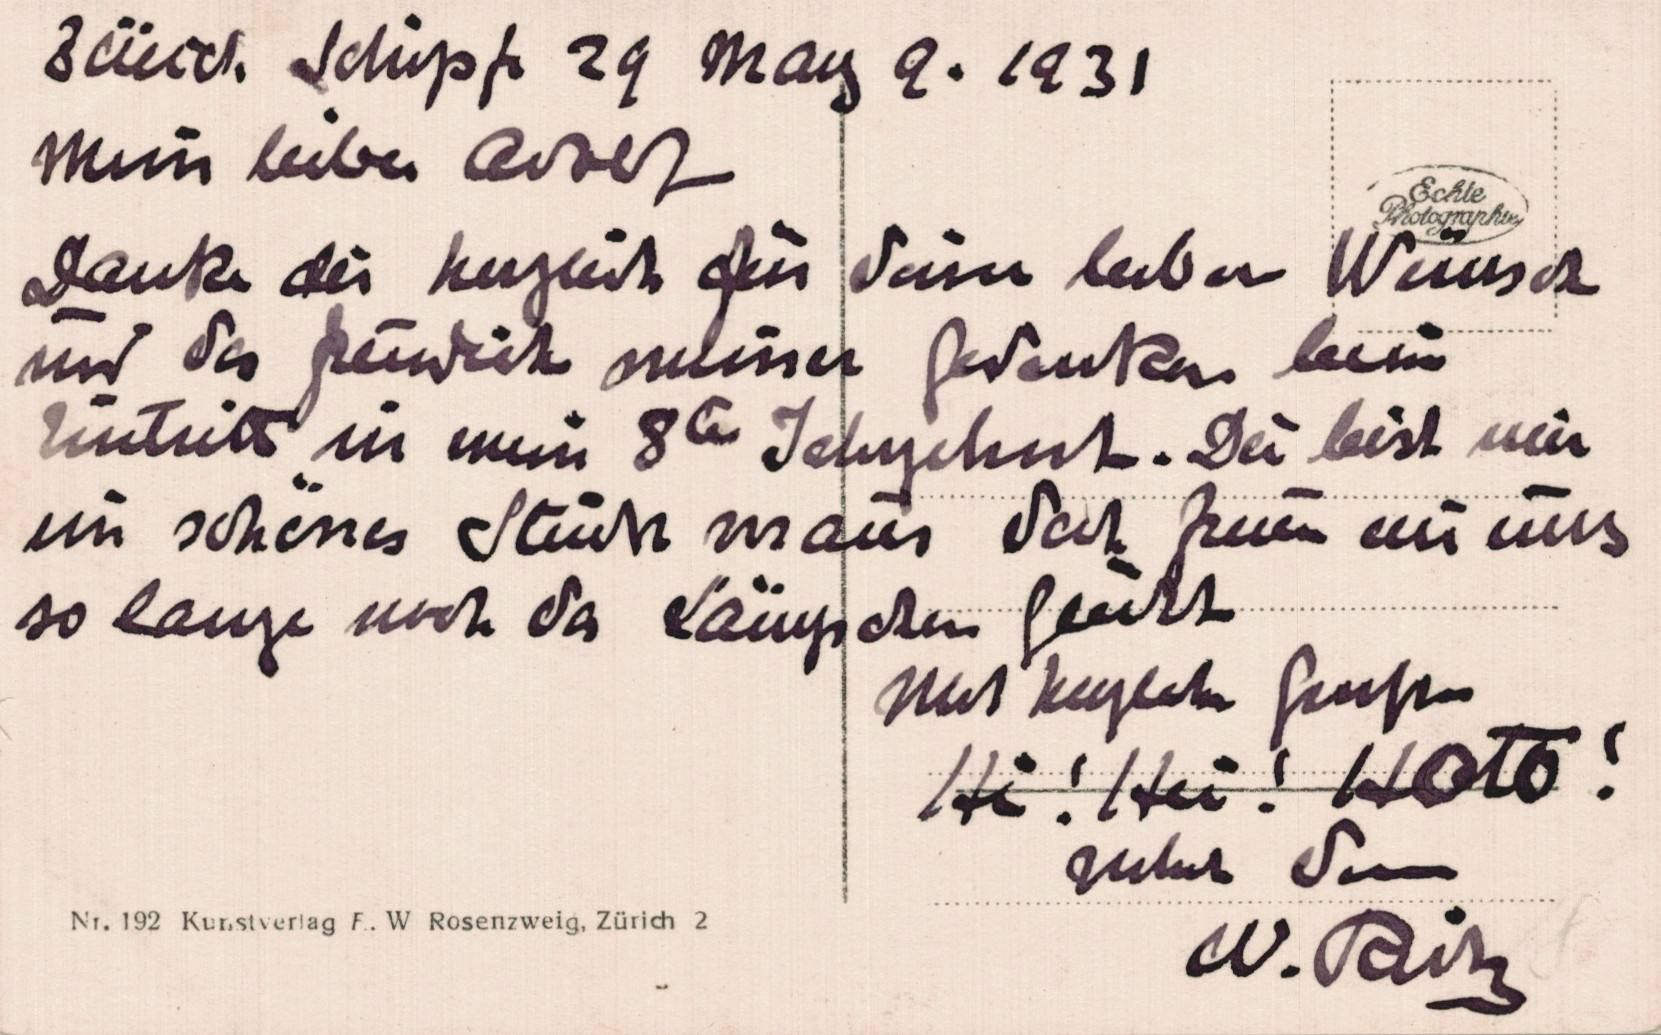 Zürich Schipfe 29 März 9. 1931
Mein lieber Adolf
Echte
Photographie
Danke dir herzlich für deinen lieben Wunsch
und das meiner Gedanken beim
Eintritt in mein 8tes Jahrzehnt. Du bist mir
ein schönes Stück voraus doch freuen wir uns
so lange noch das Lämpchen glüht
Mit herzlichen Grüßen
Hi! Hei! HOTO!
Dein
W.
Nr. 192 Kunstverlag F. W Rosenzweig, Zürich 2